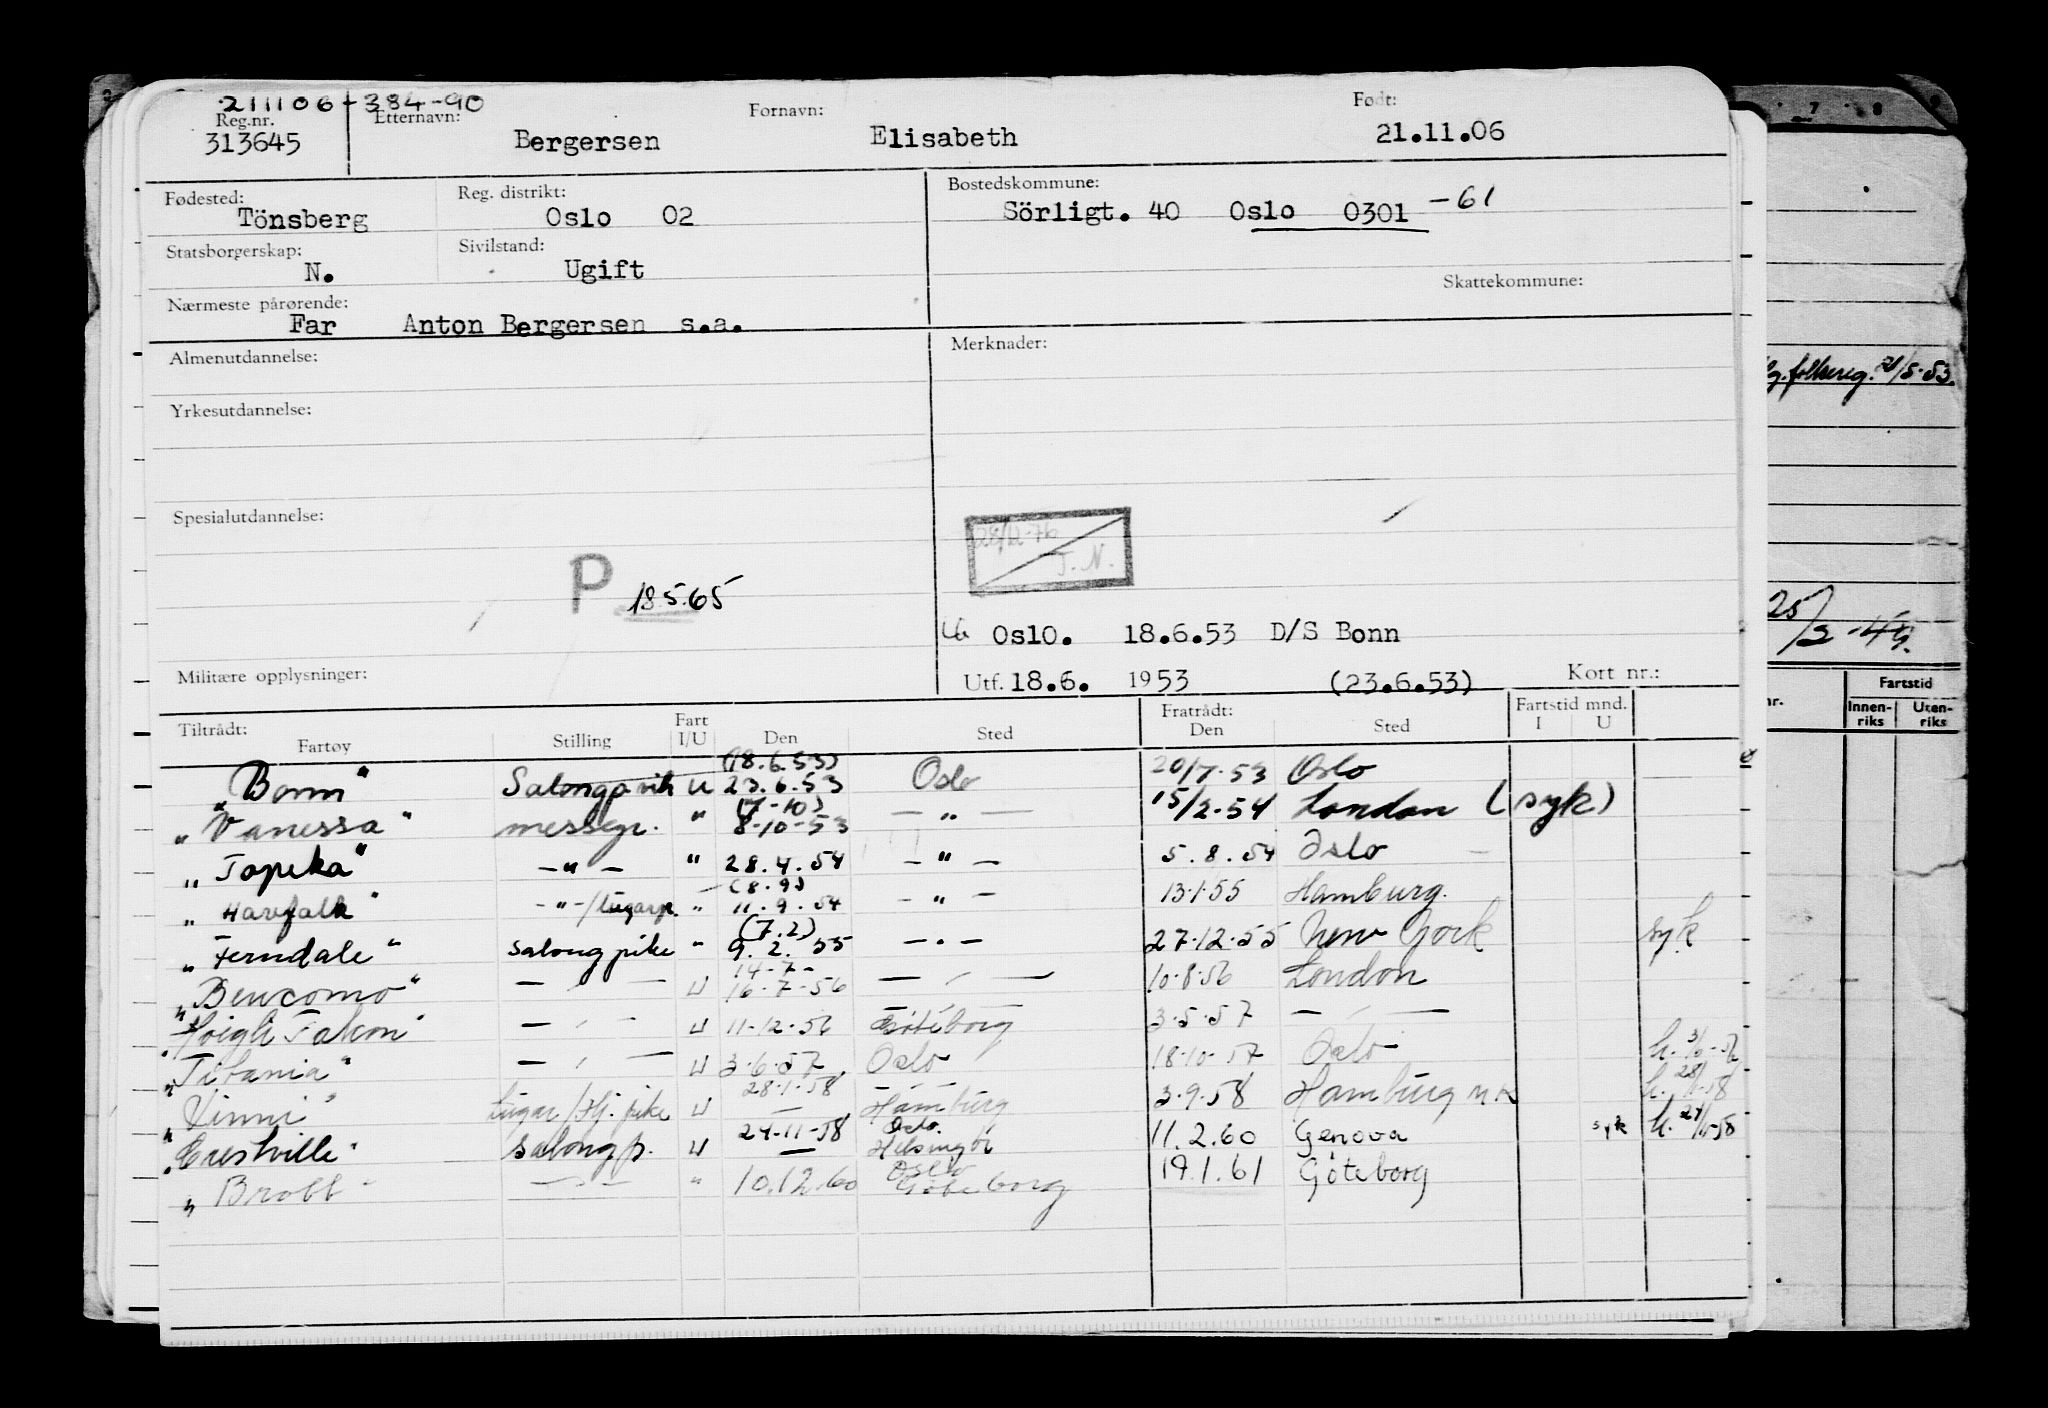 211106-384-90
Reg.nr. Etternavn: Fornavn: Født:
313645 Bergersen Elisabeth 21.11.06
Fødested: Reg. distrikt: Bostedskommune:
Tönsberg Oslo 02 Sörligt. 40 Oslo 0301 -61
Statsborgerskap: Sivilstand:
N. Ugift
Skattekommune:
Nærmeste pårørende:
Far Anton Bergersen s.a.
Almenutdannelse: Merknader:
Yrkesutdannelse:
Spesialutdannelse:
28/12-76
J.N.
P 18.5.65
Oslo. 18.6.53 D/S Bonn
Militære opplysninger: Utf. 18.6. 1953 (23.6.53) Kort nr.:
Tiltrådt: Fratrådt: Fartstid mnd.
Fartøy Stilling Fart I/U Den Sted Den Sted I U
(18.6.53)
"Bonn" U 23.6.53 Oslo 20/7-53 Oslo
(7-10)
"Vanessa" messegr. " 8-10-53 — " — 15/2-54 London (syk)
"Topeka" — " — " 28.4.54 — " — 5.8.54 Oslo
(8.9)
"Havfalk" - " -/lugarp. " 11.9.54 - " - 13.1.55 Hamburg.
(7.2)
"Ferndale" salongpike " 9.2.55 — " — 27.12.55 New York syk
14-7-
"Bencomo" — " — U 16-7-56 — " — 10.8.56 London
"Høegh Falcon" — " — U 11-12-56 Göteborg 3.5.57 — " —
"Titania" — " — U 3.6.57 Oslo 18-10-57 Oslo
28.1.58
"Vinni" Lugar/Hj. pike U — Hamburg 3.9.58 Hamburg
24-11-58 Oslo.
salongp. U — Helsingör 11.2.60 Genova syk
Oslo
— " — " 10.12.60 Göteborg 19.1.61 Göteborg
7 8
folkereg. 21/5-53.
25/3-49.
nr. Fartstid
Innen-riks Uten-riks